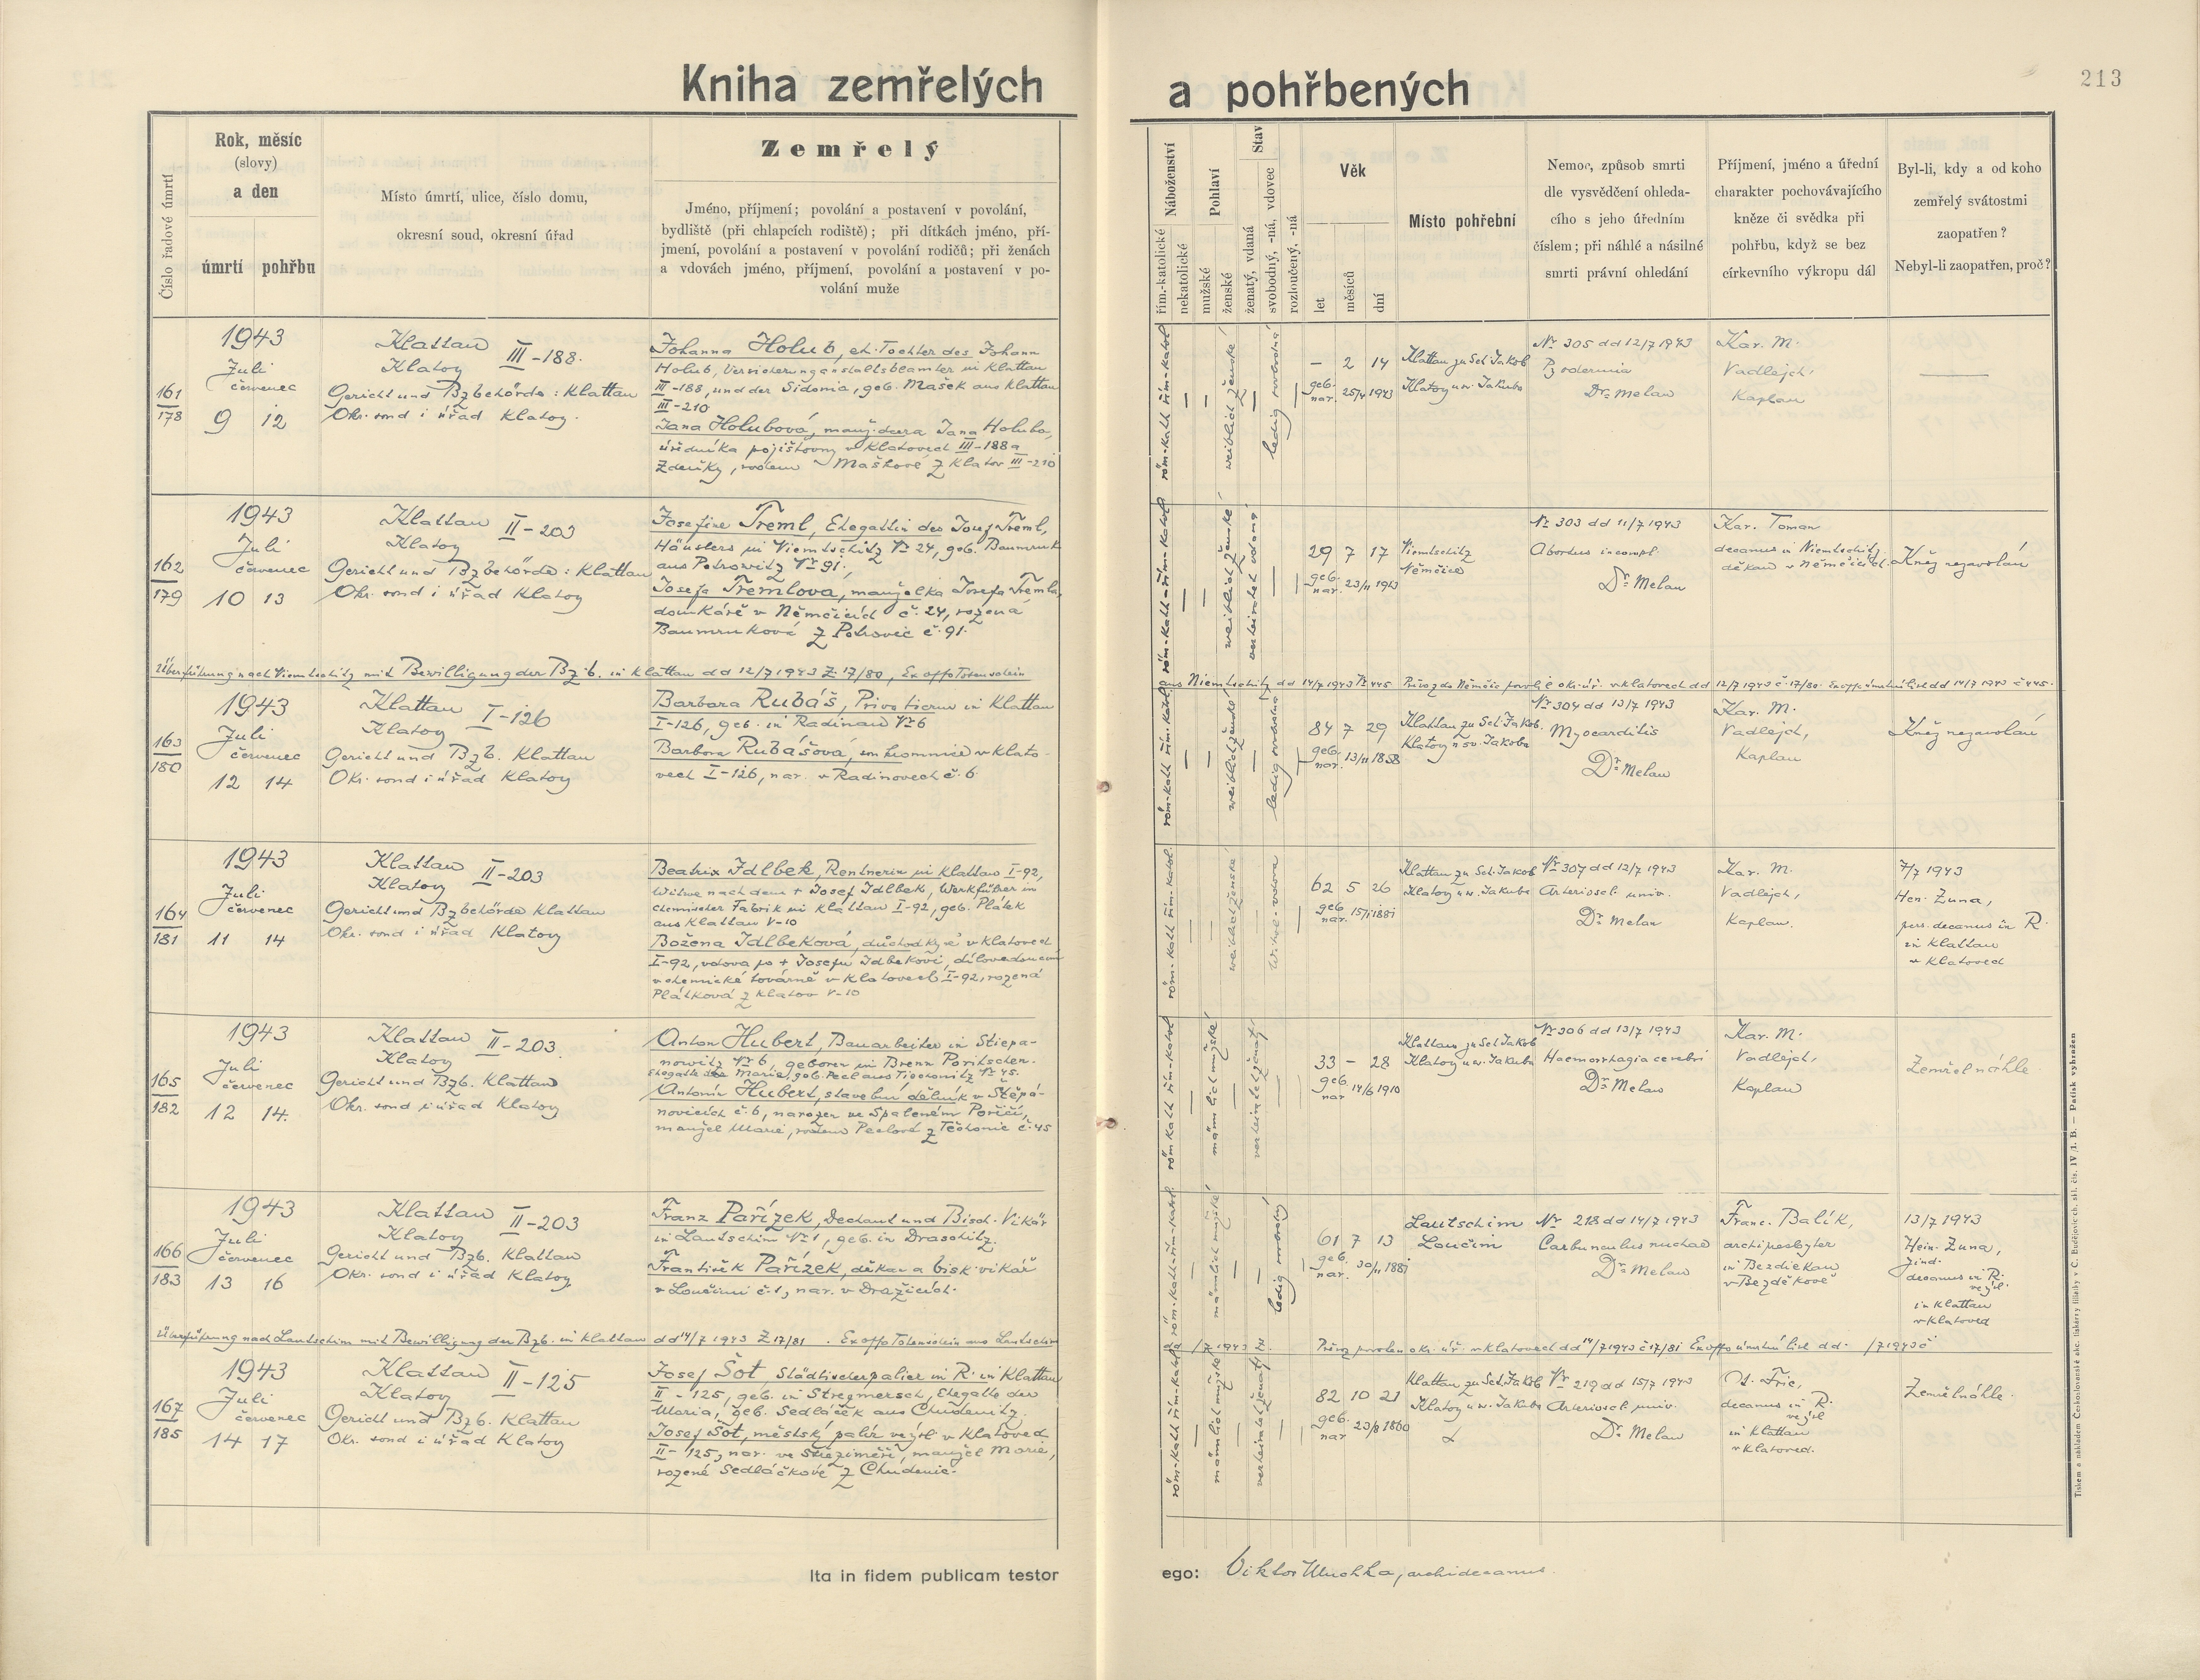 Kniha zemřelých a pohřbených
213
Číslo řadové úmrtí
Rok, měsíc
(slovy)
a den
úmrtí pohřbu
Místo úmrtí, ulice, číslo domu,
okresní soud, okresní úřad
Zemřelý
Jméno, příjmení; povolání a postavení v povolání,
bydliště (při chlapcích rodiště); při dítkách jméno, pří-
jmení, povolání a postavení v povolání rodičů; při ženách
a vdovách jméno, příjmení, povolání a postavení v po-
volání muže
Náboženství
řím.-katolické
nekatolické
Pohlaví
mužské
ženské
Stav
ženatý, vdaná
svobodný, -ná, vdovec
rozloučený, -ná
Věk
let
měsíců
dní
Místo pohřební
Nemoc, způsob smrti
dle vysvědčení ohleda-
cího s jeho úředním
číslem; při náhlé a násilné
smrti právní ohledání
Příjmení, jméno a úřední
charakter pochovávajícího
kněze či svědka při
pohřbu, když se bez
církevního výkropu dál
Byl-li, kdy a od koho
zemřelý svátostmi
zaopatřen?
Nebyl-li zaopatřen, proč?
161
178
1943
Juli
červenec
9 12
Klattau
Klatovy III-188.
Gericht und Bzbehörde: Klattau
Okr. soud i úřad Klatovy.
Johanna Holub, eh. Tochter des Johann
Holub, Versicherungsanstaltsbeamter in Klattau
III-188, und der Sidonia, geb. Mašek aus Klattau
III-210
Jana Holubová, manž. dcera Jana Holuba,
úředníka pojišťovny v Klatovech III-188 a
Zdeňky, rozené Maškové z Klatov III-210
röm-kath řím-katol
weiblich ženské
ledig svobodná
– 2 14
geb.
nar. 25/4 1943
Klattau zu Sct. Jakob
Klatovy u sv. Jakuba
Nr 305 dd 12/7 1943
Dr. Melan
Kar. M.
Vadlejch,
Kaplan
162
179
1943
Juli
červenec
10 13
Klattau
Klatovy II-203
Gericht und Bzbehörde: Klattau
Okr. soud i úřad Klatovy
Josefine Treml, Ehegattin des Josef Treml,
Häuslers in Niemtschitz Nr 24, geb. Baumruk
aus Petrowitz Nr 91.
Josefa Tremlova, manželka Josefa Tremla,
domkáře v Němčicích č. 24, rozená
Baumruková z Petrovic č. 91.
röm-kath řím-katol
weiblich ženské
verheiratet vdaná
29 7 17
geb.
nar. 23/11 1913
Niemtschitz
Němčice
Nr 303 dd 11/7 1943
Abortus incompl.
Dr. Melan
Kar. Toman
decanus in Niemtschitz.
děkan v Němčicích.
Kněz nezavolán
Überführung nach Niemtschitz mit Bewilligung der Bz. b. in Klattau dd 12/7 1943 Z. 17/80, Ex offo Totenschein
aus Niemtschitz dd 14/7 1943 Nr 445 Převoz do Němčic povolil okr. úř. v Klatovech dd 12/7 1943 č. 17/80. Ex offo úmrtní list dd 14/7 1943 č 445.
163
180
1943
Juli
červenec
12 14
Klattau
Klatovy I-126
Gericht und Bzb. Klattau
Okr. soud i úřad Klatovy
Barbara Rubáš, Privatierin in Klattau
I-126, geb. in Radinau Nr 6
Barbora Rubášová, soukromnice v Klato-
vech I-126, nar. v Radinovech č. 6
röm-kath řím-katol
weiblich ženské
ledig svobodná
84 7 29
geb.
nar. 13/11 1858
Klattau zu Sct. Jakob.
Klatovy u sv. Jakuba
Nr 304 dd 13/7 1943
Myocarditis
Dr. Melan
Kar. M.
Vadlejch,
Kaplan
Kněz nezavolán
164
181
1943
Juli
červenec
11 14
Klattau
Klatovy II-203
Gericht und Bzbehörde Klattau
Okr. soud i úřad Klatovy
Beatrix Idlbek, Rentnerin in Klattau I-92,
Witwe nach dem + Josef Idlbek, Werkführer in
chemischer Fabrik in Klattau I-92, geb. Plátek
aus Klattau V-10
Božena Idlbeková, důchodkyně v Klatovech
I-92, vdova po + Josefu Idlbekovi, dílovedoucím
v chemické továrně v Klatovech I-92, rozená
Plátková z Klatov V-10
röm-kath řím-katol.
weiblich ženské
Witwe-vdova
62 5 26
geb.
nar. 15/1 1881
Klattau zu Sct. Jakob
Klatovy u sv. Jakuba
Nr 307 dd 12/7 1943
Arterioscl. univ.
Dr. Melan
Kar. M.
Vadlejch,
Kaplan.
7/7 1943
Hen. Zuna,
decanus in R.
in Klattau
v Klatovech
165
182
1943
Juli
červenec
12 14.
Klattau
Klatovy II-203.
Gericht und Bzb. Klattau
Okr. soud i úřad Klatovy
Anton Hubert, Bauarbeiter in Stiepa-
nowitz Nr 6, geboren in Brenn Poritschen.
Ehegatte der Marie, geb. Pecl aus Tieschowitz Nr 45.
Antonín Hubert, stavební dělník v Štěpá-
novicích č. 6, narozen ve Spáleném Poříčí,
manžel Marie, rozené Peclové z Těchonic č. 45
röm kath řím-katol
männlich mužské
verheiratet ženatý
33 – 28
geb.
nar 14/6 1910
Klattau zu Sct. Jakob
Klatovy u sv. Jakuba
Nr 306 dd 13/7 1943
Haemorrhagia cerebri
Dr. Melan
Kar. M.
Vadlejch,
Kaplan
Zemřel náhle
166
183
1943
Juli
červenec
13 16
Klattau
Klatovy II-203
Gericht und Bzb. Klattau
Okr. soud i úřad Klatovy.
Franz Pařízek, Dechant und Bisch. Vikär
in Lautschim Nr 1, geb. in Draschitz.
František Pařízek, děkan a bisk. vikář
v Loučimi č. 1, nar. v Dražicích.
röm.-kath řím-katol.
männlich mužské
ledig svobodný
61 7 13
geb.
nar. 30/11 1881
Lautschim
Loučim
Nr 218 dd 14/7 1943
Carbunculus nuchae
Dr. Melan
Franc. Balík,
archipresbyter
in Bezdiekau
v Bezděkově
13/7 1943
Hein. Zuna,
decanus in R.
in Klattau
v Klatovech
Überführung nach Lautschim mit Bewilligung der Bzb. in Klattau dd 14/7 1943 Z 17/81. Ex offo Totenschein aus Lautschim
/7 1943 Převoz povolen okr. úř. v Klatovech dd 14/7 1943 č 17/81 Ex offo úmrtní list dd. /7 1943 č
167
185
1943
Juli
červenec
14 17
Klattau
Klatovy II-125
Gericht und Bzb. Klattau
Okr. soud i úřad Klatovy
Josef Šot, Städtischerpalier in R. in Klattau
II-125, geb. in Stregmersch, Ehegatte der
Maria, geb. Sedláček aus Chudenitz.
Josef Šot, městský palír ve výsl. v Klatovech
II-125, nar. ve Střeziměři, manžel Marie,
rozené Sedláčkové z Chudenic.
röm-kath řím-katol
männlich mužské
verheiratet ženatý
82 10 21
geb.
nar 23/8 1860
Klattau zu Sct. Jakob
Klatovy u sv. Jakuba
Nr 219 dd 15/7 1943
Arterioscl. univ.
Dr. Melan
Fric,
decanus in R.
in Klattau
v Klatovech.
Zemřel náhle.
Ita in fidem publicam testor ego: Viktor archidecanus.
Tiskem a nákladem Českoslovanské akc. tiskárny filiálky v Č. Budějovicích, skl. čís. IV /1. B. — Patisk vyhražen